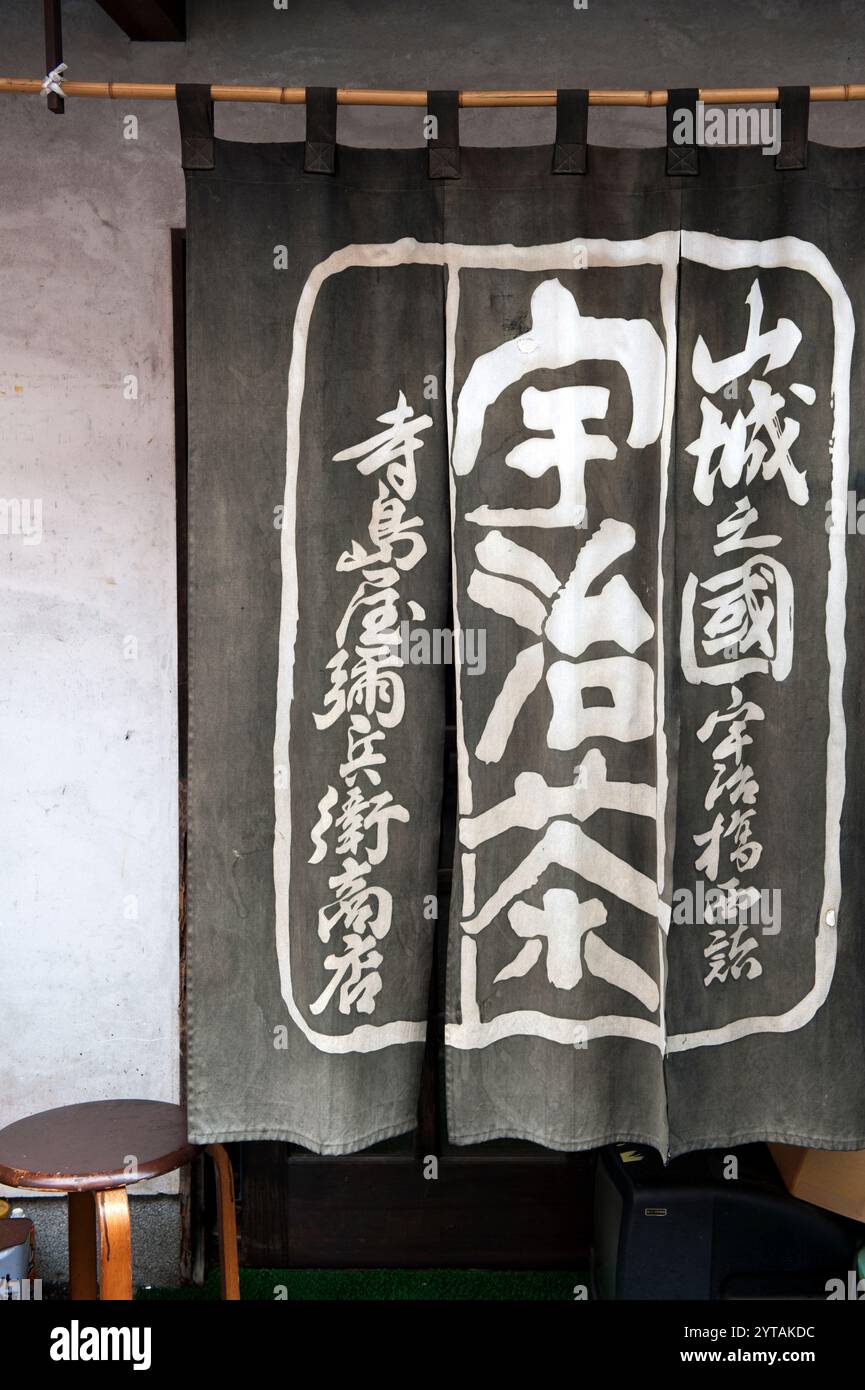 山城之國宇治橋西詰
宇治茶
寺島屋彌兵衛商店
alamy
Image ID: 2YTAKDC
www.alamy.com